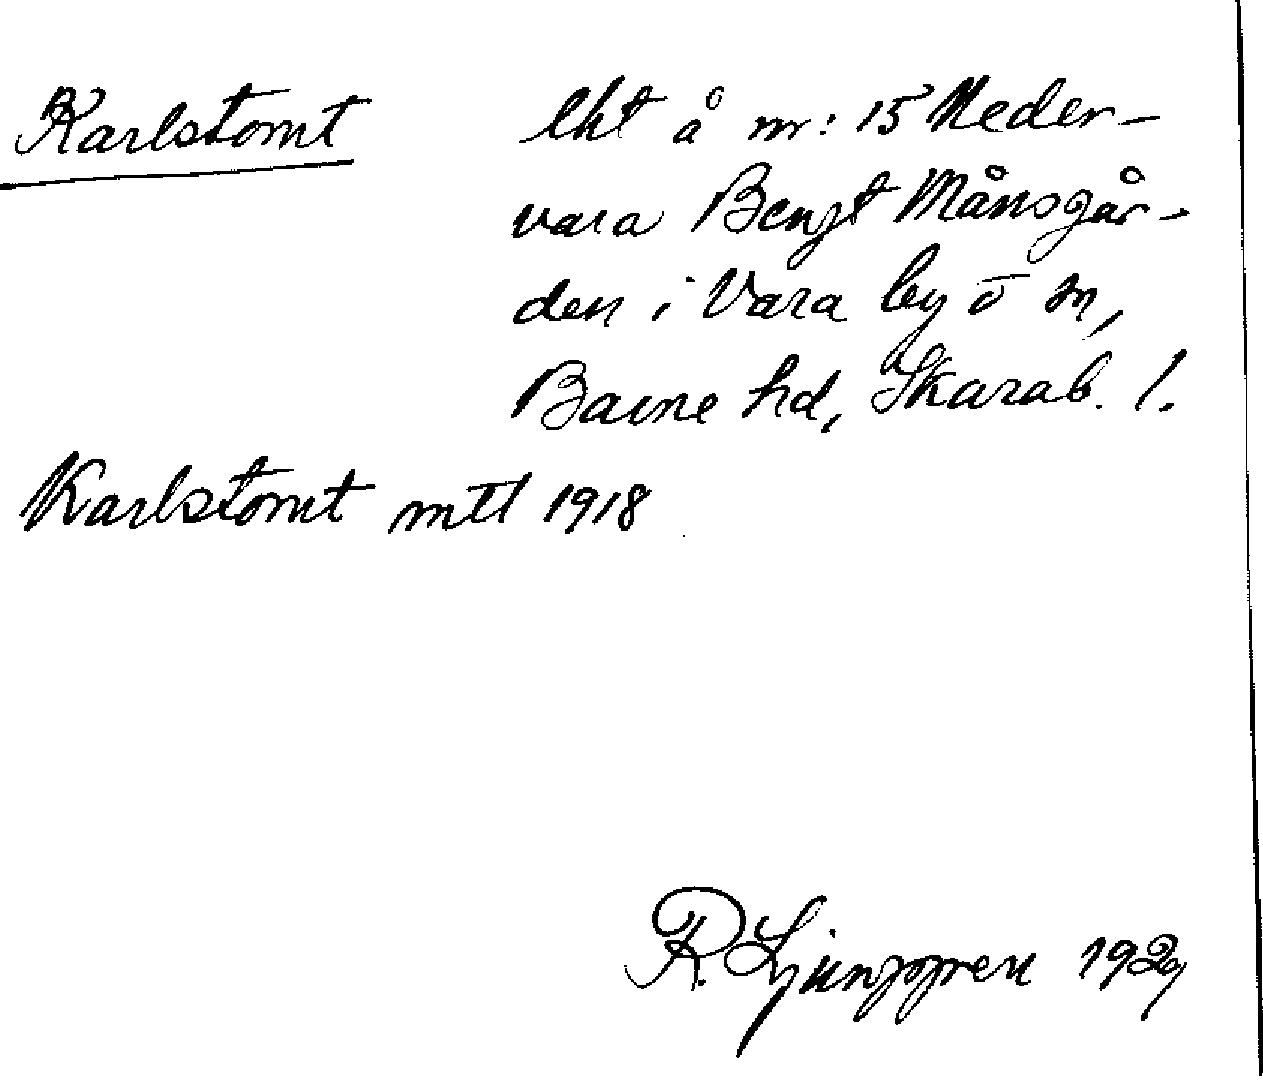 Karlstomt lht å nr: 15 Neder-
vara Bengt Månsgår-
den i Vara by o sn,
Barne hd, Skarab. l.
Karlstomt mtl 1918
R Ljunggren 1929